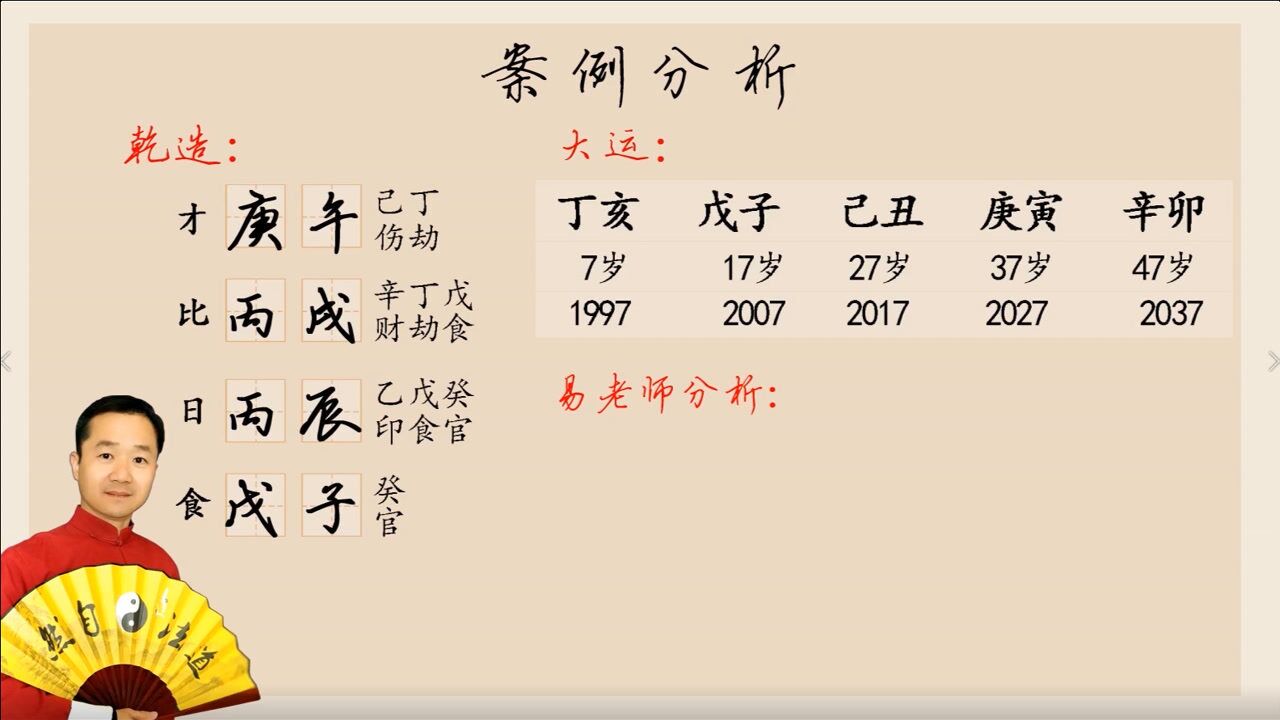 案例分析
乾造：
才 庚 午 己丁
伤劫
比 丙 戌 辛丁戊
财劫食
日 丙 辰 乙戊癸
印食官
食 戊 子 癸
官
大运：
丁亥 戊子 己丑 庚寅 辛卯
7岁 17岁 27岁 37岁 47岁
1997 2007 2017 2027 2037
易老师分析：
道法自然